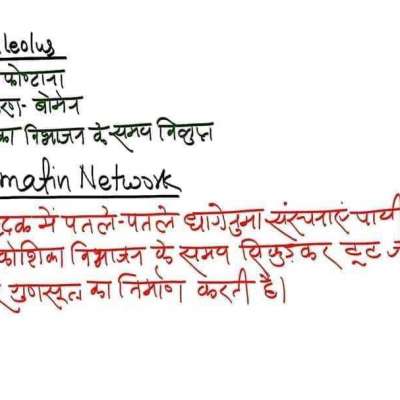 leolus
फोण्टाना
रण- बोमेन
का विभाजन के समय विलुप्त
matin Network
द्रक में पतले-पतले धागेनुमा संरचनाएं पायी
कोशिका विभाजन के समय सिकुड़कर टूट ज
गुणसूत्र का निर्माण करती है।